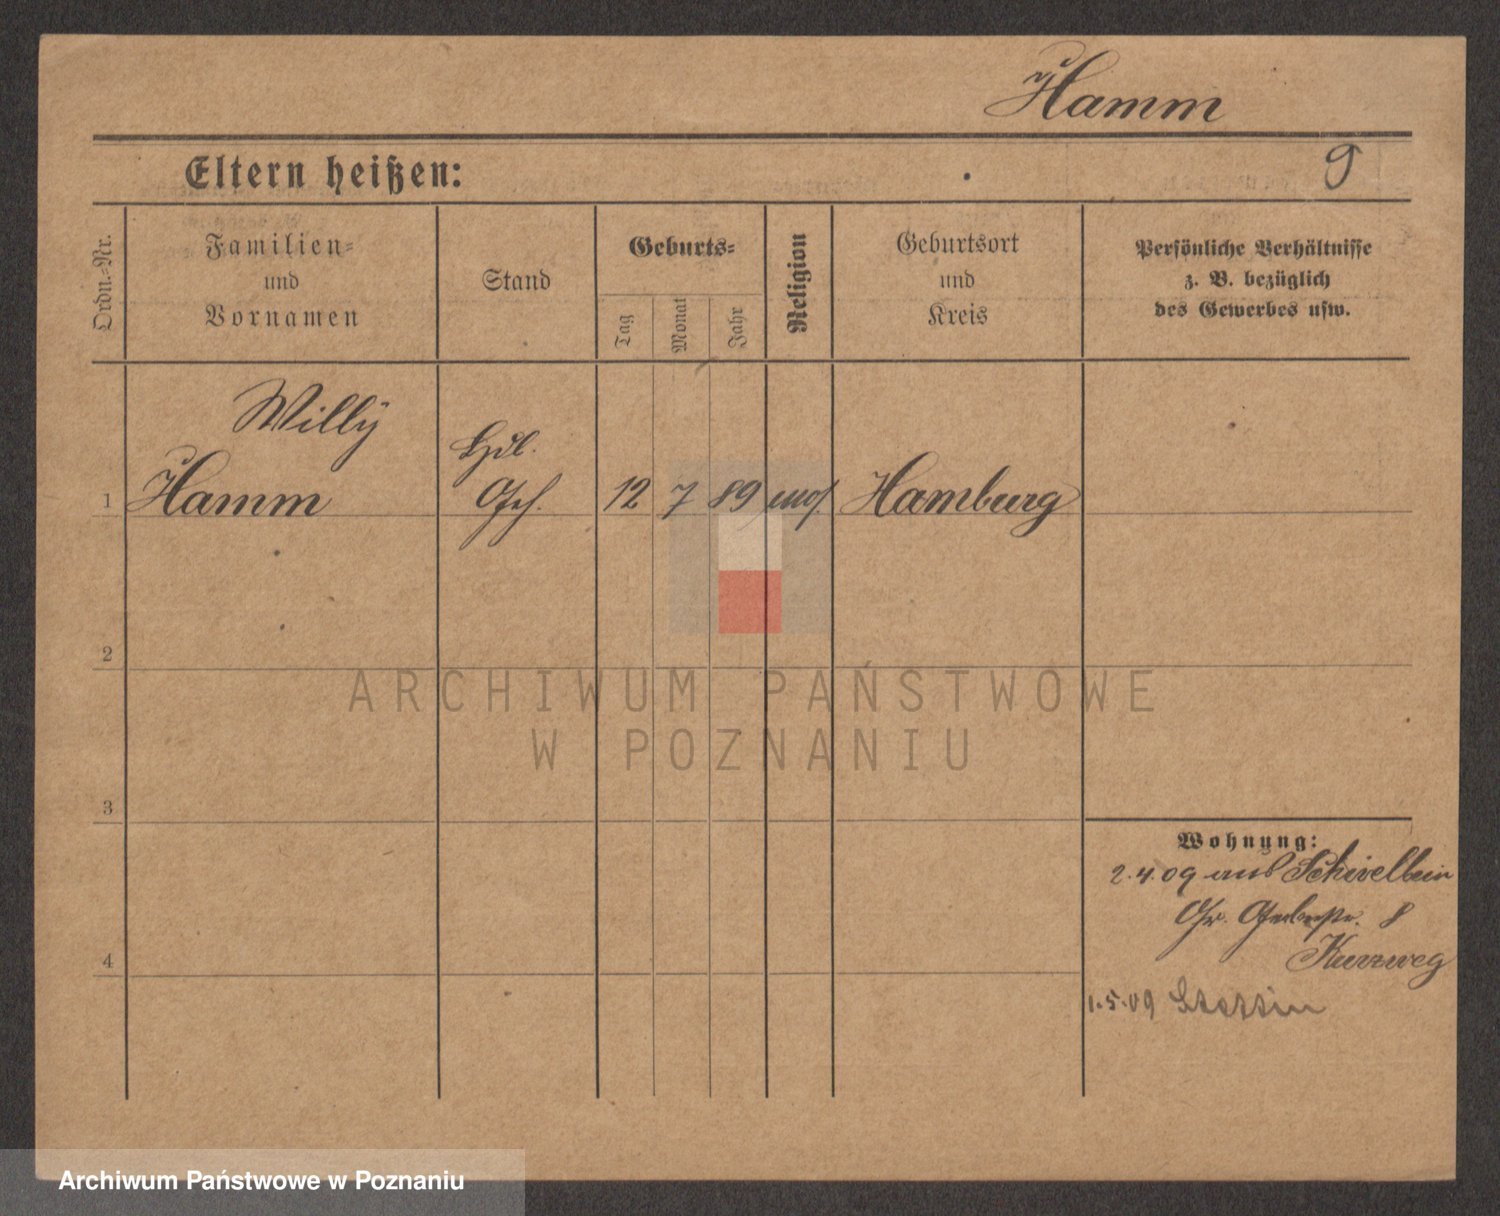 Hamm
9
Eltern heißen:
Ordn.-Nr.
Familien-
und
Vornamen
Stand
Geburts-
Tag
Monat
Jahr
Religion
Geburtsort
und
Kreis
Persönliche Verhältnisse
z. B. bezüglich
des Gewerbes usw.
Willy
Hdl.
1 Hamm Geh. 12 7 89 mos. Hamburg
2
ARCHIWUM PAŃSTWOWE
W POZNANIU
3
Wohnung:
2.4.09 aus Schivelbein
Gr. Gerberstr. 8
Kurzweg
4
1.5.09 Stettin
Archiwum Państwowe w Poznaniu